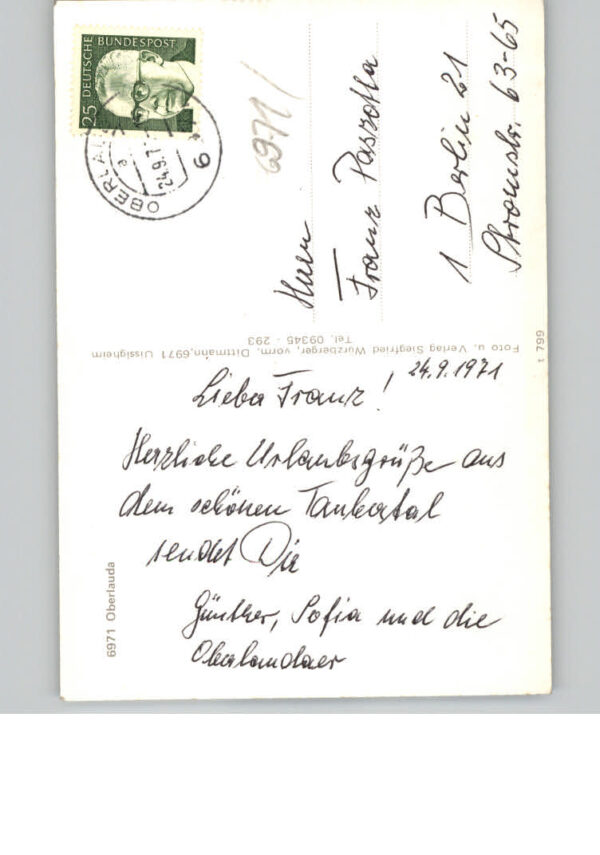 25 DEUTSCHE BUNDESPOST
24.9.7
6971
Herrn
Franz
1 Berlin 21
Stromstr. 63-65
Foto u. Verlag Siegfried Wurzberger, vorm. Dittmann, 6971 Uissigheim
Tel. 09345 - 293
t 799
24.9.1971
Lieber Franz!
Herzliche Urlaubsgrüße aus
dem schönen Taubertal
sendet Dir
Günther, Sofia und die
Oberlaudaer
6971 Oberlauda